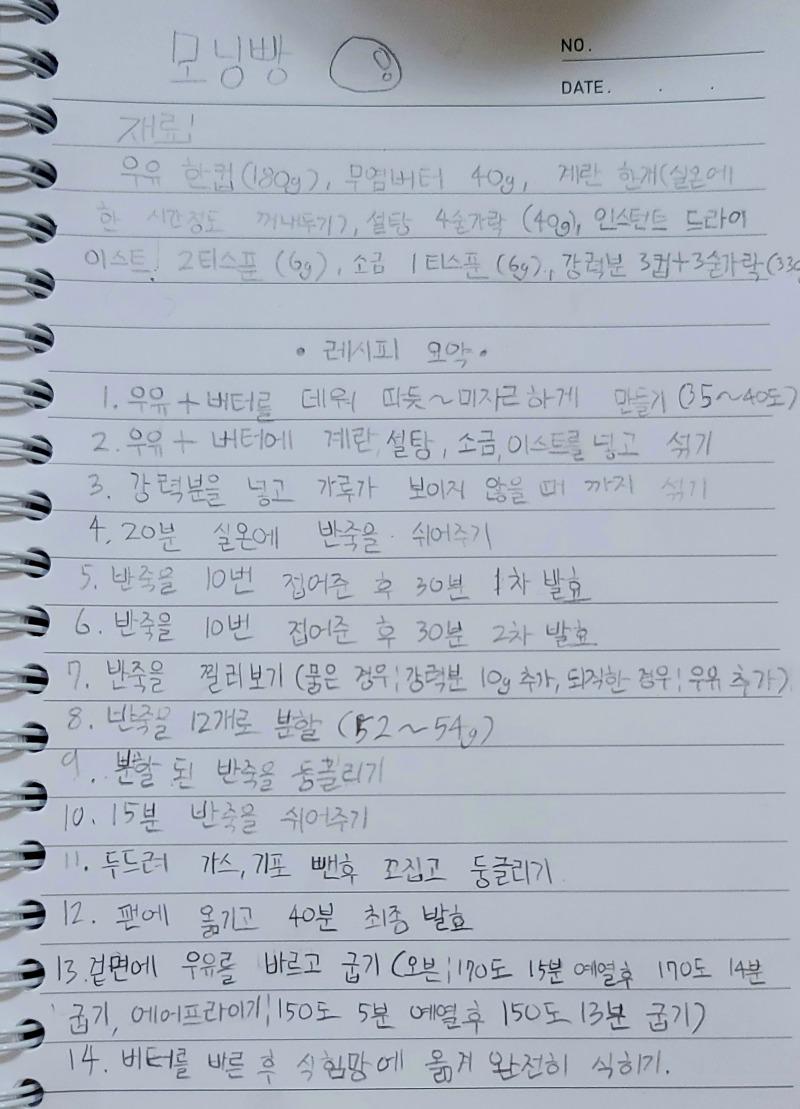 모닝빵
NO.
DATE. . .
재료!
우유 한컵(180g), 무염버터 40g, 계란 한개(실온에
한 시간정도 꺼내두기), 설탕 4숟가락 (40g), 인스턴트 드라이
이스트! 2티스푼 (6g), 소금 1티스푼 (6g), 강력분 3컵+3숟가락(33
• 레시피 요약 •
1. 우유 + 버터를 데워 따듯~미지근하게 만들기 (35~40도)
2. 우유 + 버터에 계란, 설탕, 소금, 이스트를 넣고 섞기
3. 강력분을 넣고 가루가 보이지 않을 때 까지 섞기
4. 20분 실온에 반죽을 쉬어주기
5. 반죽을 10번 접어준 후 30분 1차 발효
6. 반죽을 10번 접어준 후 30분 2차 발효
7. 반죽을 찔러보기 (묽은 경우¦강력분 10g 추가, 되직한 경우¦우유 추가)
8. 반죽을 12개로 분할 (52~54g)
9. 분할 된 반죽을 둥글리기
10. 15분 반죽을 쉬어주기
11. 두드려 가스, 기포 뺀후 꼬집고 둥글리기
12. 팬에 옮기고 40분 최종 발효
13. 겉면에 우유를 바르고 굽기 (오븐¦170도 15분 예열후 170도 14분
굽기, 에어프라이기¦150도 5분 예열후 150도 13분 굽기)
14. 버터를 바른 후 식힘망에 옮겨 완전히 식히기.